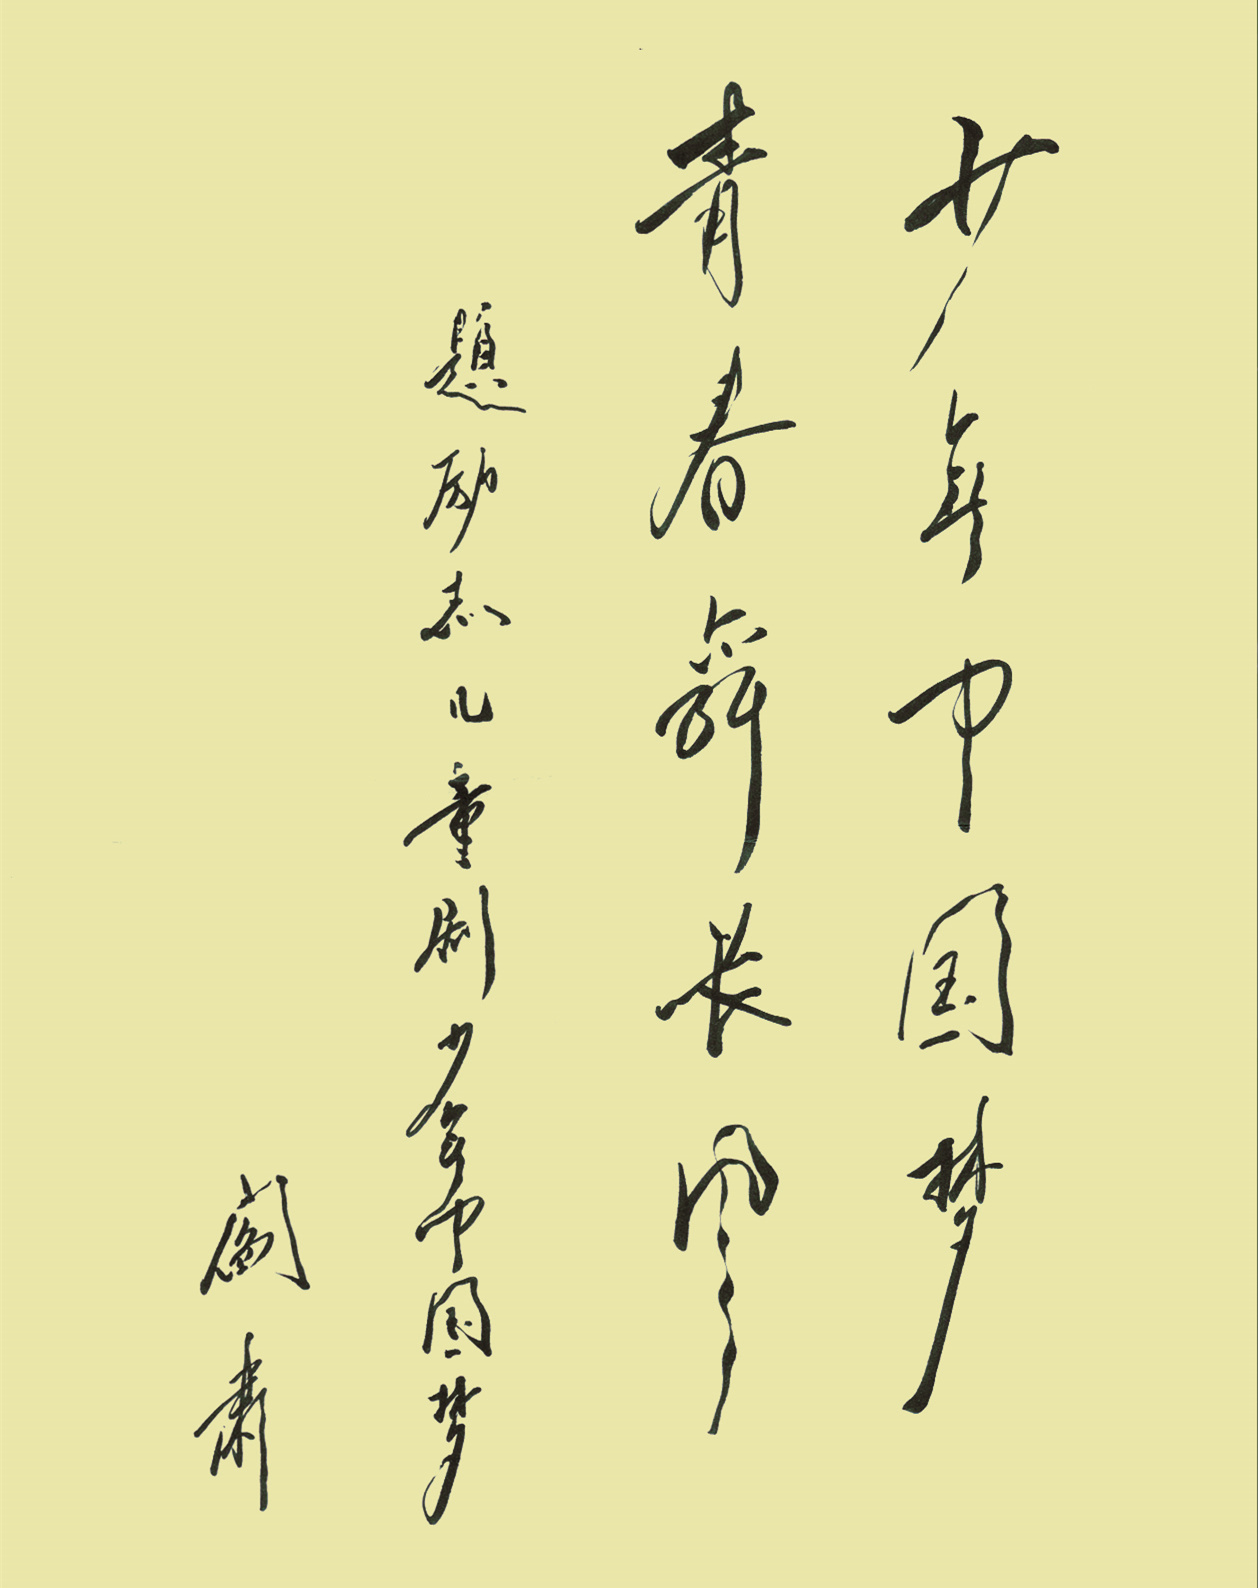 少年中国梦
青春舞长风
题励志儿童剧少年中国梦
阎肃